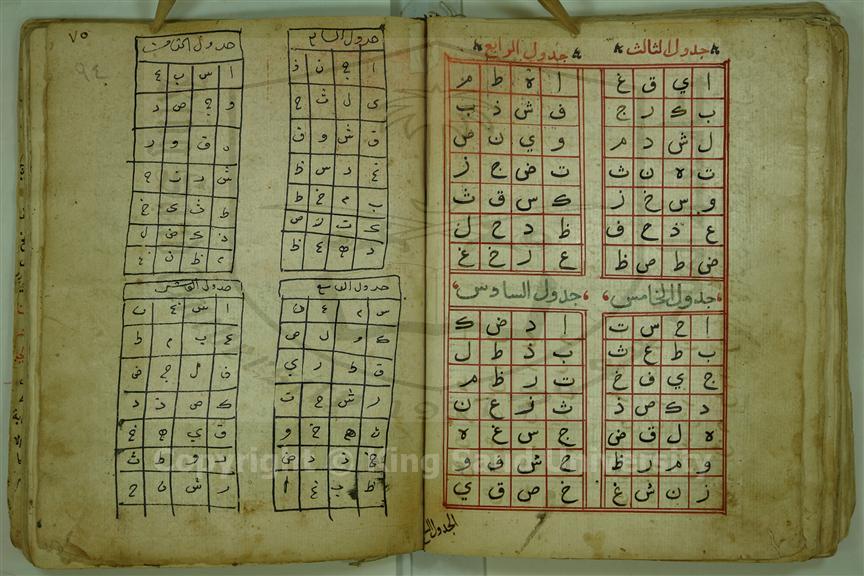 جدول الثالث
ا ي ق غ
ب ك ر ج
ل ش د م
ت ه ن ث
و س خ ز
ع ذ ح ف
ض ط ص ظ
جدول الرابع
ا ه ط م
ف ش ذ ب
و ي ن ص
ت ض ج ز
ك س ق ث
ظ د ح ل
ع ر خ غ
جدول الخامس
ا ح س ت
ب ط ع ث
ج ي ف خ
د ك ص ذ
ه ل ق ض
و م ر ظ
ز ن ش غ
جدول السادس
ا د ض ك
ب ذ ط ل
ت ر ظ م
ث ز ع ن
ج س غ ه
ح ش ف و
خ ص ق ي
٧٥
٩٤
جدول السابع
ا ج ن ذ
ي ل ث ح
ق ش و ف
غ د س ظ
ب م خ ط
ك ت ز ص
ر ه ع ض
جدول الثامن
ا س ب ع
ف ج ص د
ه ق و ر
ش ز ت ح
ط ث ي خ
ذ ك ض ل
م ظ ن غ
جدول التاسع
س م ع ن
ك ف ل ص
ق ط ر ي
ز ش ح ت
ث ه خ و
ج ذ د ض
ظ ب غ ا
جدول العاشر
ا س غ ن
ع ب م ظ
ف ل ج ض
ك ص ذ د
ق ي ه خ
و ر ط ث
ز ش ت ح
Copyright © King Saud University